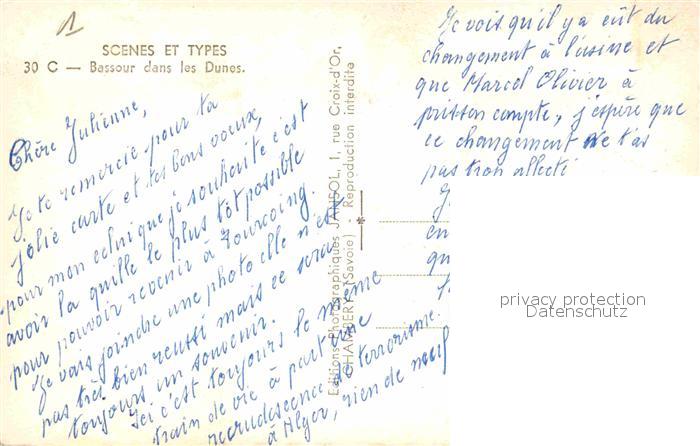 1
SCENES ET TYPES
30 C — Bassour dans les Dunes.
Chère Julienne,
Je te remercie pour ta
jolie carte et tes bons voeux,
pour mon je souhaite c'est
avoir la quille le plus tôt possible
pour pouvoir revenir à Tourcoing.
Je vais joindre une photo elle n'est
pas très bien reussi mais ce sera
toujours un souvenir.
Ici c'est toujours le même
train de vie à part une
recrudescence de terrorisme
à Alger, rien de neuf
Editions Photographiques JANSOL, 1, rue Croix-d'Or,
CHAMBERY (Savoie) - Reproduction interdite
Je vois qu'il y a eût du
changement à l'usine et
que Marcel Olivier à
prisson compte, j'espère que
ce changement ne t'as
pas trop affecté
J
en
qu
privacy protection
Datenschutz